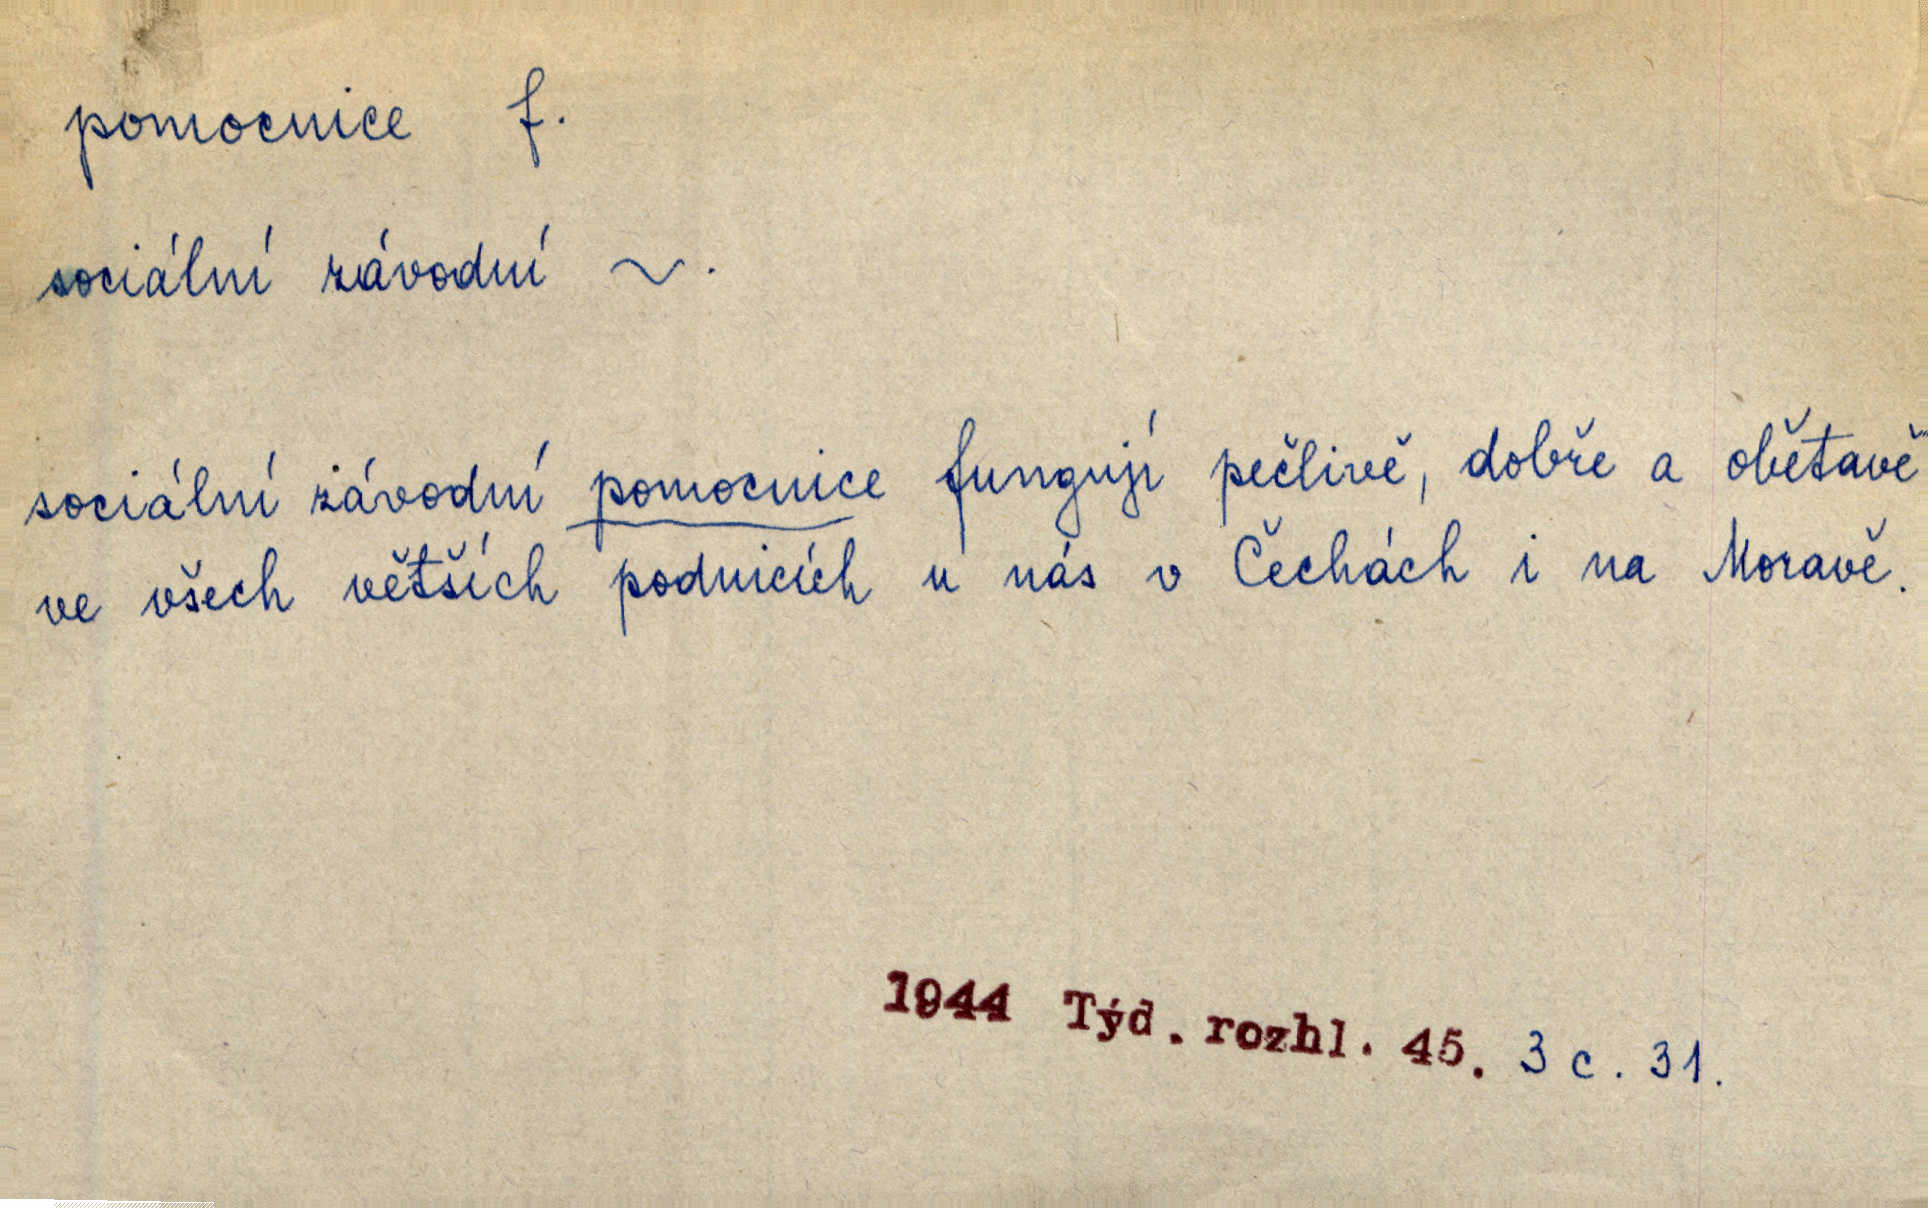 pomocnice f.
sociální závodní ~.
sociální závodní pomocnice fungují pečlivě, dobře a obětavě
ve všech větších podnicích u nás v Čechách i na Moravě.
1944 Týd. rozhl. 45. 3 c. 31.